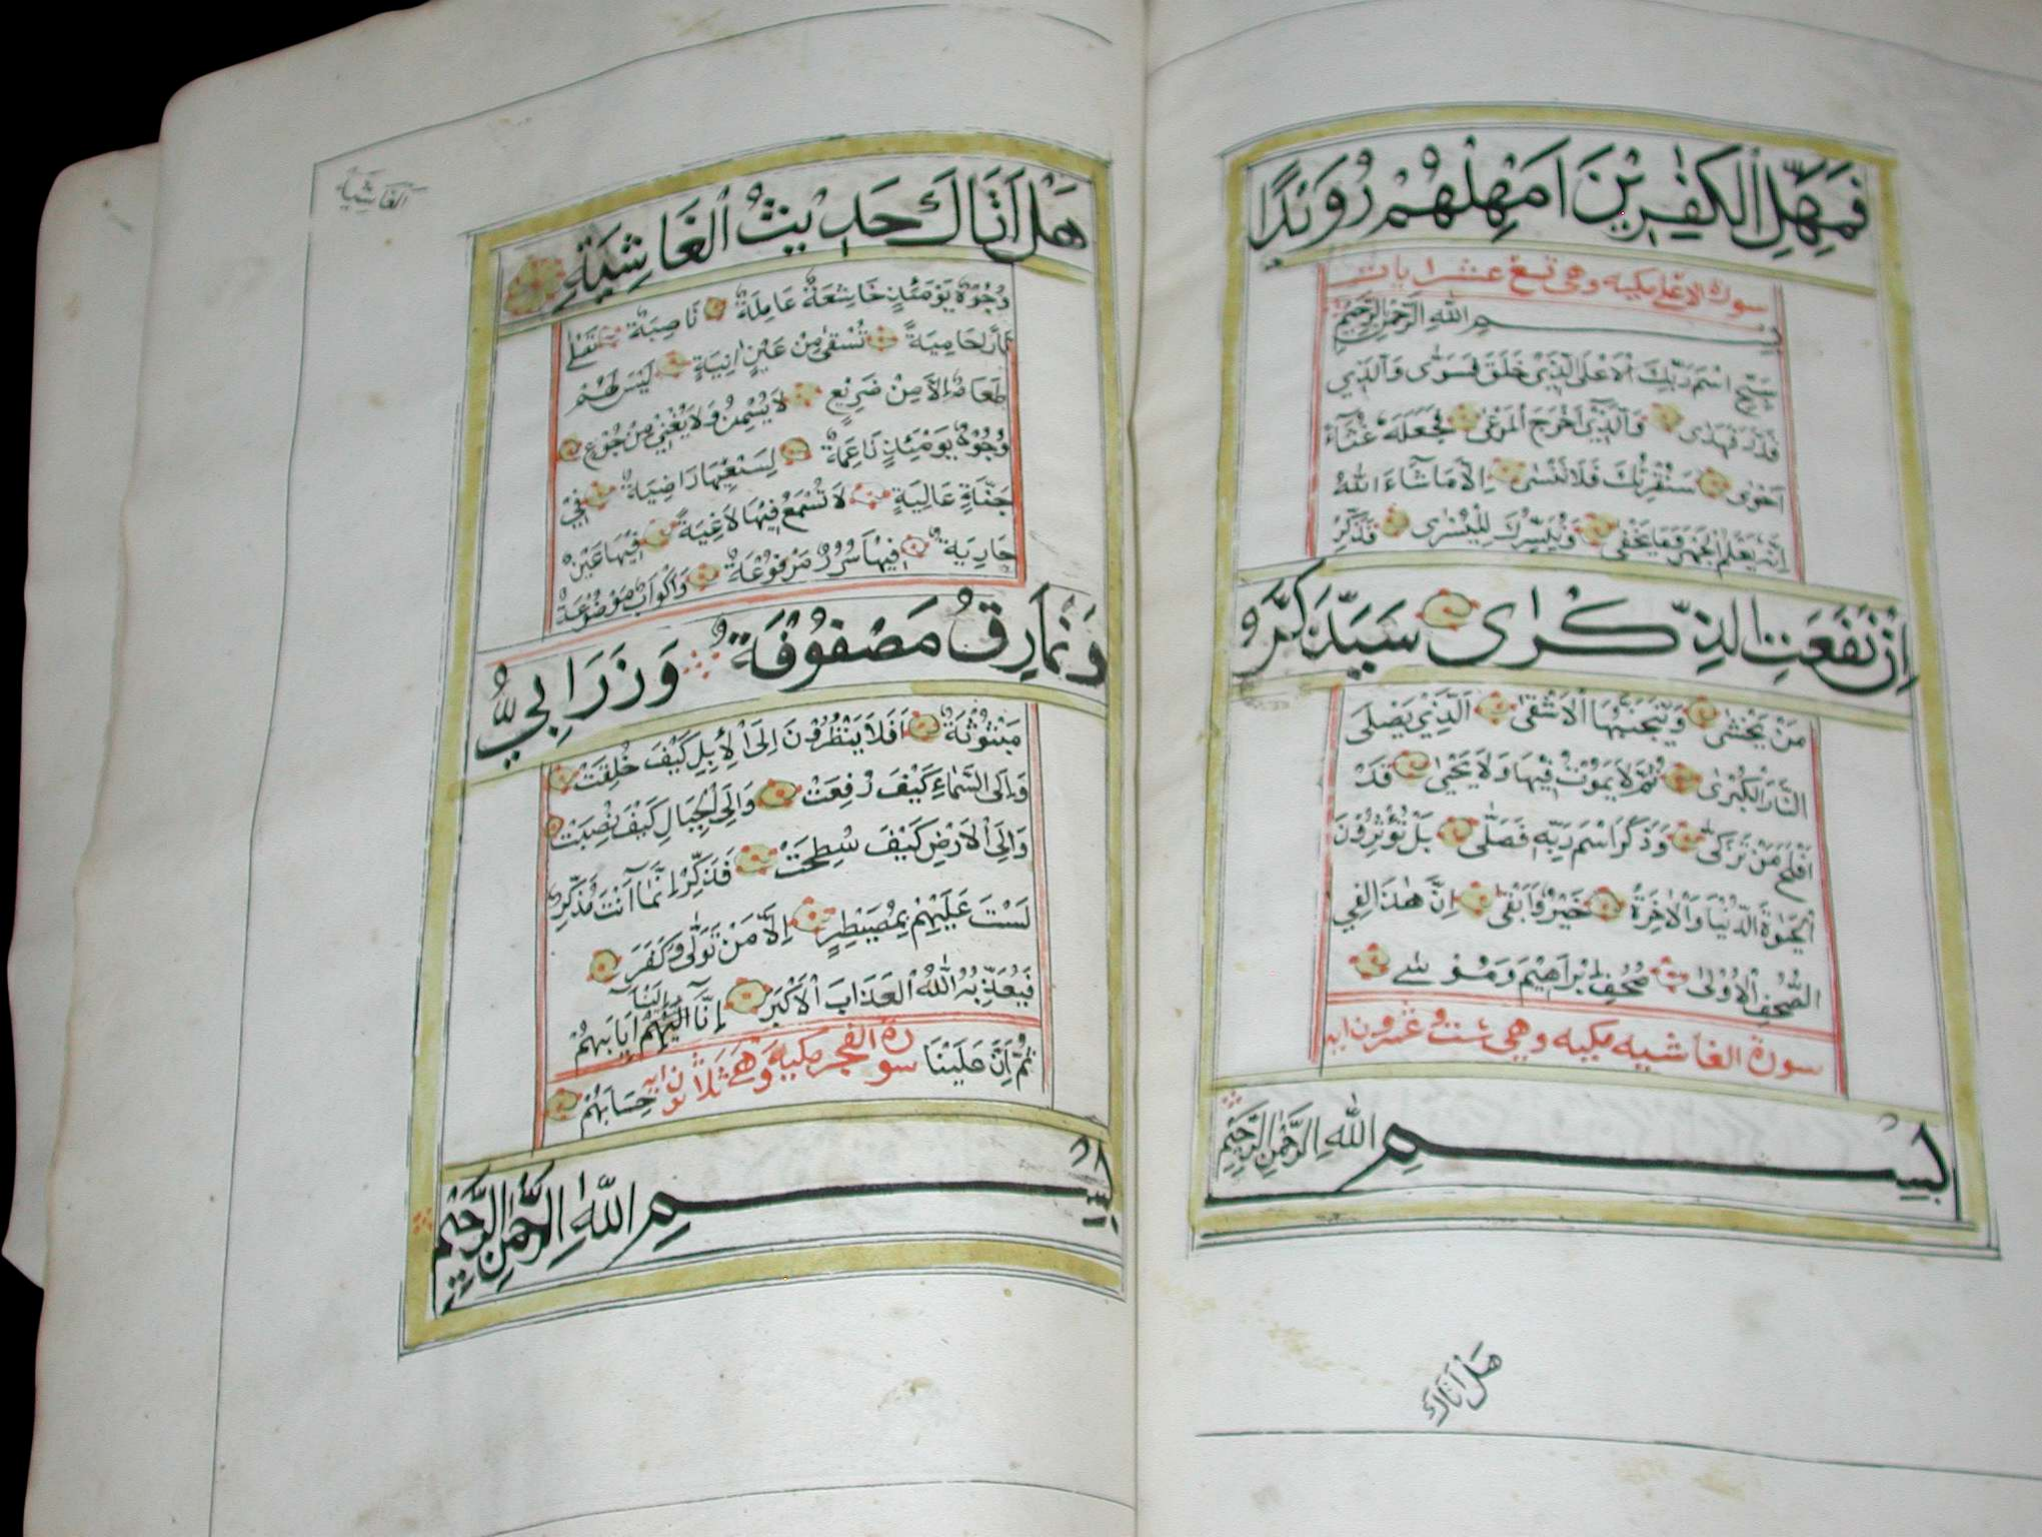 فَمَهِّلِ الْكٰفِرِيْنَ اَمْهِلْهُمْ رُوَيْدًا
سورة الاعلى مكيه وهى تسع عشر ايات
بِسْمِ اللهِ الرَّحْمٰنِ الرَّحِيْمِ
سَبِّحِ اسْمَ رَبِّكَ الْاَعْلَى الَّذِيْ خَلَقَ فَسَوّٰى وَالَّذِيْ
قَدَّرَ فَهَدٰى وَالَّذِيْ اَخْرَجَ الْمَرْعٰى فَجَعَلَهُ غُثَآءً
اَحْوٰى سَنُقْرِئُكَ فَلَا تَنْسٰى اِلَّا مَا شَآءَ اللهُ
اِنَّهُ يَعْلَمُ الْجَهْرَ وَمَا يَخْفٰى وَنُيَسِّرُكَ لِلْيُسْرٰى فَذَكِّرْ
اِنْ نَفَعَتِ الذِّكْرٰى سَيَذَّكَّرُ
مَنْ يَخْشٰى وَيَتَجَنَّبُهَا الْاَشْقٰى الَّذِيْ يَصْلَى
النَّارَ الْكُبْرٰى ثُمَّ لَا يَمُوْتُ فِيْهَا وَلَا يَحْيٰى قَدْ
اَفْلَحَ مَنْ تَزَكّٰى وَذَكَرَ اسْمَ رَبِّهٖ فَصَلّٰى بَلْ تُؤْثِرُوْنَ
الْحَيٰوةَ الدُّنْيَا وَالْاٰخِرَةُ خَيْرٌ وَاَبْقٰى اِنَّ هٰذَا لَفِي
الصُّحُفِ الْاُوْلٰى صُحُفِ اِبْرَاهِيْمَ وَمُوْسٰى
سورة الغاشيه مكيه وهى ست عشرون ايه
بِسْمِ اللهِ الرَّحْمٰنِ الرَّحِيْمِ
هَلْ اَتَاكَ
الغاشية
هَلْ اَتَاكَ حَدِيْثُ الْغَاشِيَةِ
وُجُوْهٌ يَوْمَئِذٍ خَاشِعَةٌ عَامِلَةٌ نَاصِبَةٌ تَصْلٰى
نَارًا حَامِيَةً تُسْقٰى مِنْ عَيْنٍ اٰنِيَةٍ لَيْسَ لَهُمْ
طَعَامٌ اِلَّا مِنْ ضَرِيْعٍ لَا يُسْمِنُ وَلَا يُغْنِيْ مِنْ جُوْعٍ
وُجُوْهٌ يَوْمَئِذٍ نَاعِمَةٌ لِسَعْيِهَا رَاضِيَةٌ فِيْ
جَنَّةٍ عَالِيَةٍ لَا تُسْمَعُ فِيْهَا لَاغِيَةً فِيْهَا عَيْنٌ
جَارِيَةٌ فِيْهَا سُرُرٌ مَرْفُوْعَةٌ وَاَكْوَابٌ مَوْضُوْعَةٌ
وَنَمَارِقُ مَصْفُوْفَةٌ وَزَرَابِيُّ
مَبْثُوْثَةٌ اَفَلَا يَنْظُرُوْنَ اِلَى الْاِبِلِ كَيْفَ خُلِقَتْ
وَاِلَى السَّمَاءِ كَيْفَ رُفِعَتْ وَاِلَى الْجِبَالِ كَيْفَ نُصِبَتْ
وَاِلَى الْاَرْضِ كَيْفَ سُطِحَتْ فَذَكِّرْ اِنَّمَا اَنْتَ مُذَكِّرٌ
لَسْتَ عَلَيْهِمْ بِمُصَيْطِرٍ اِلَّا مَنْ تَوَلّٰى وَكَفَرَ
فَيُعَذِّبُهُ اللهُ الْعَذَابَ الْاَكْبَرَ اِنَّا اِلَيْنَا اِيَابَهُمْ
ثُمَّ اِنَّ عَلَيْنَا حِسَابَهُمْ
سورة الفجر مكيه وهى ثلاثون ايه
بِسْمِ اللهِ الرَّحْمٰنِ الرَّحِيْمِ